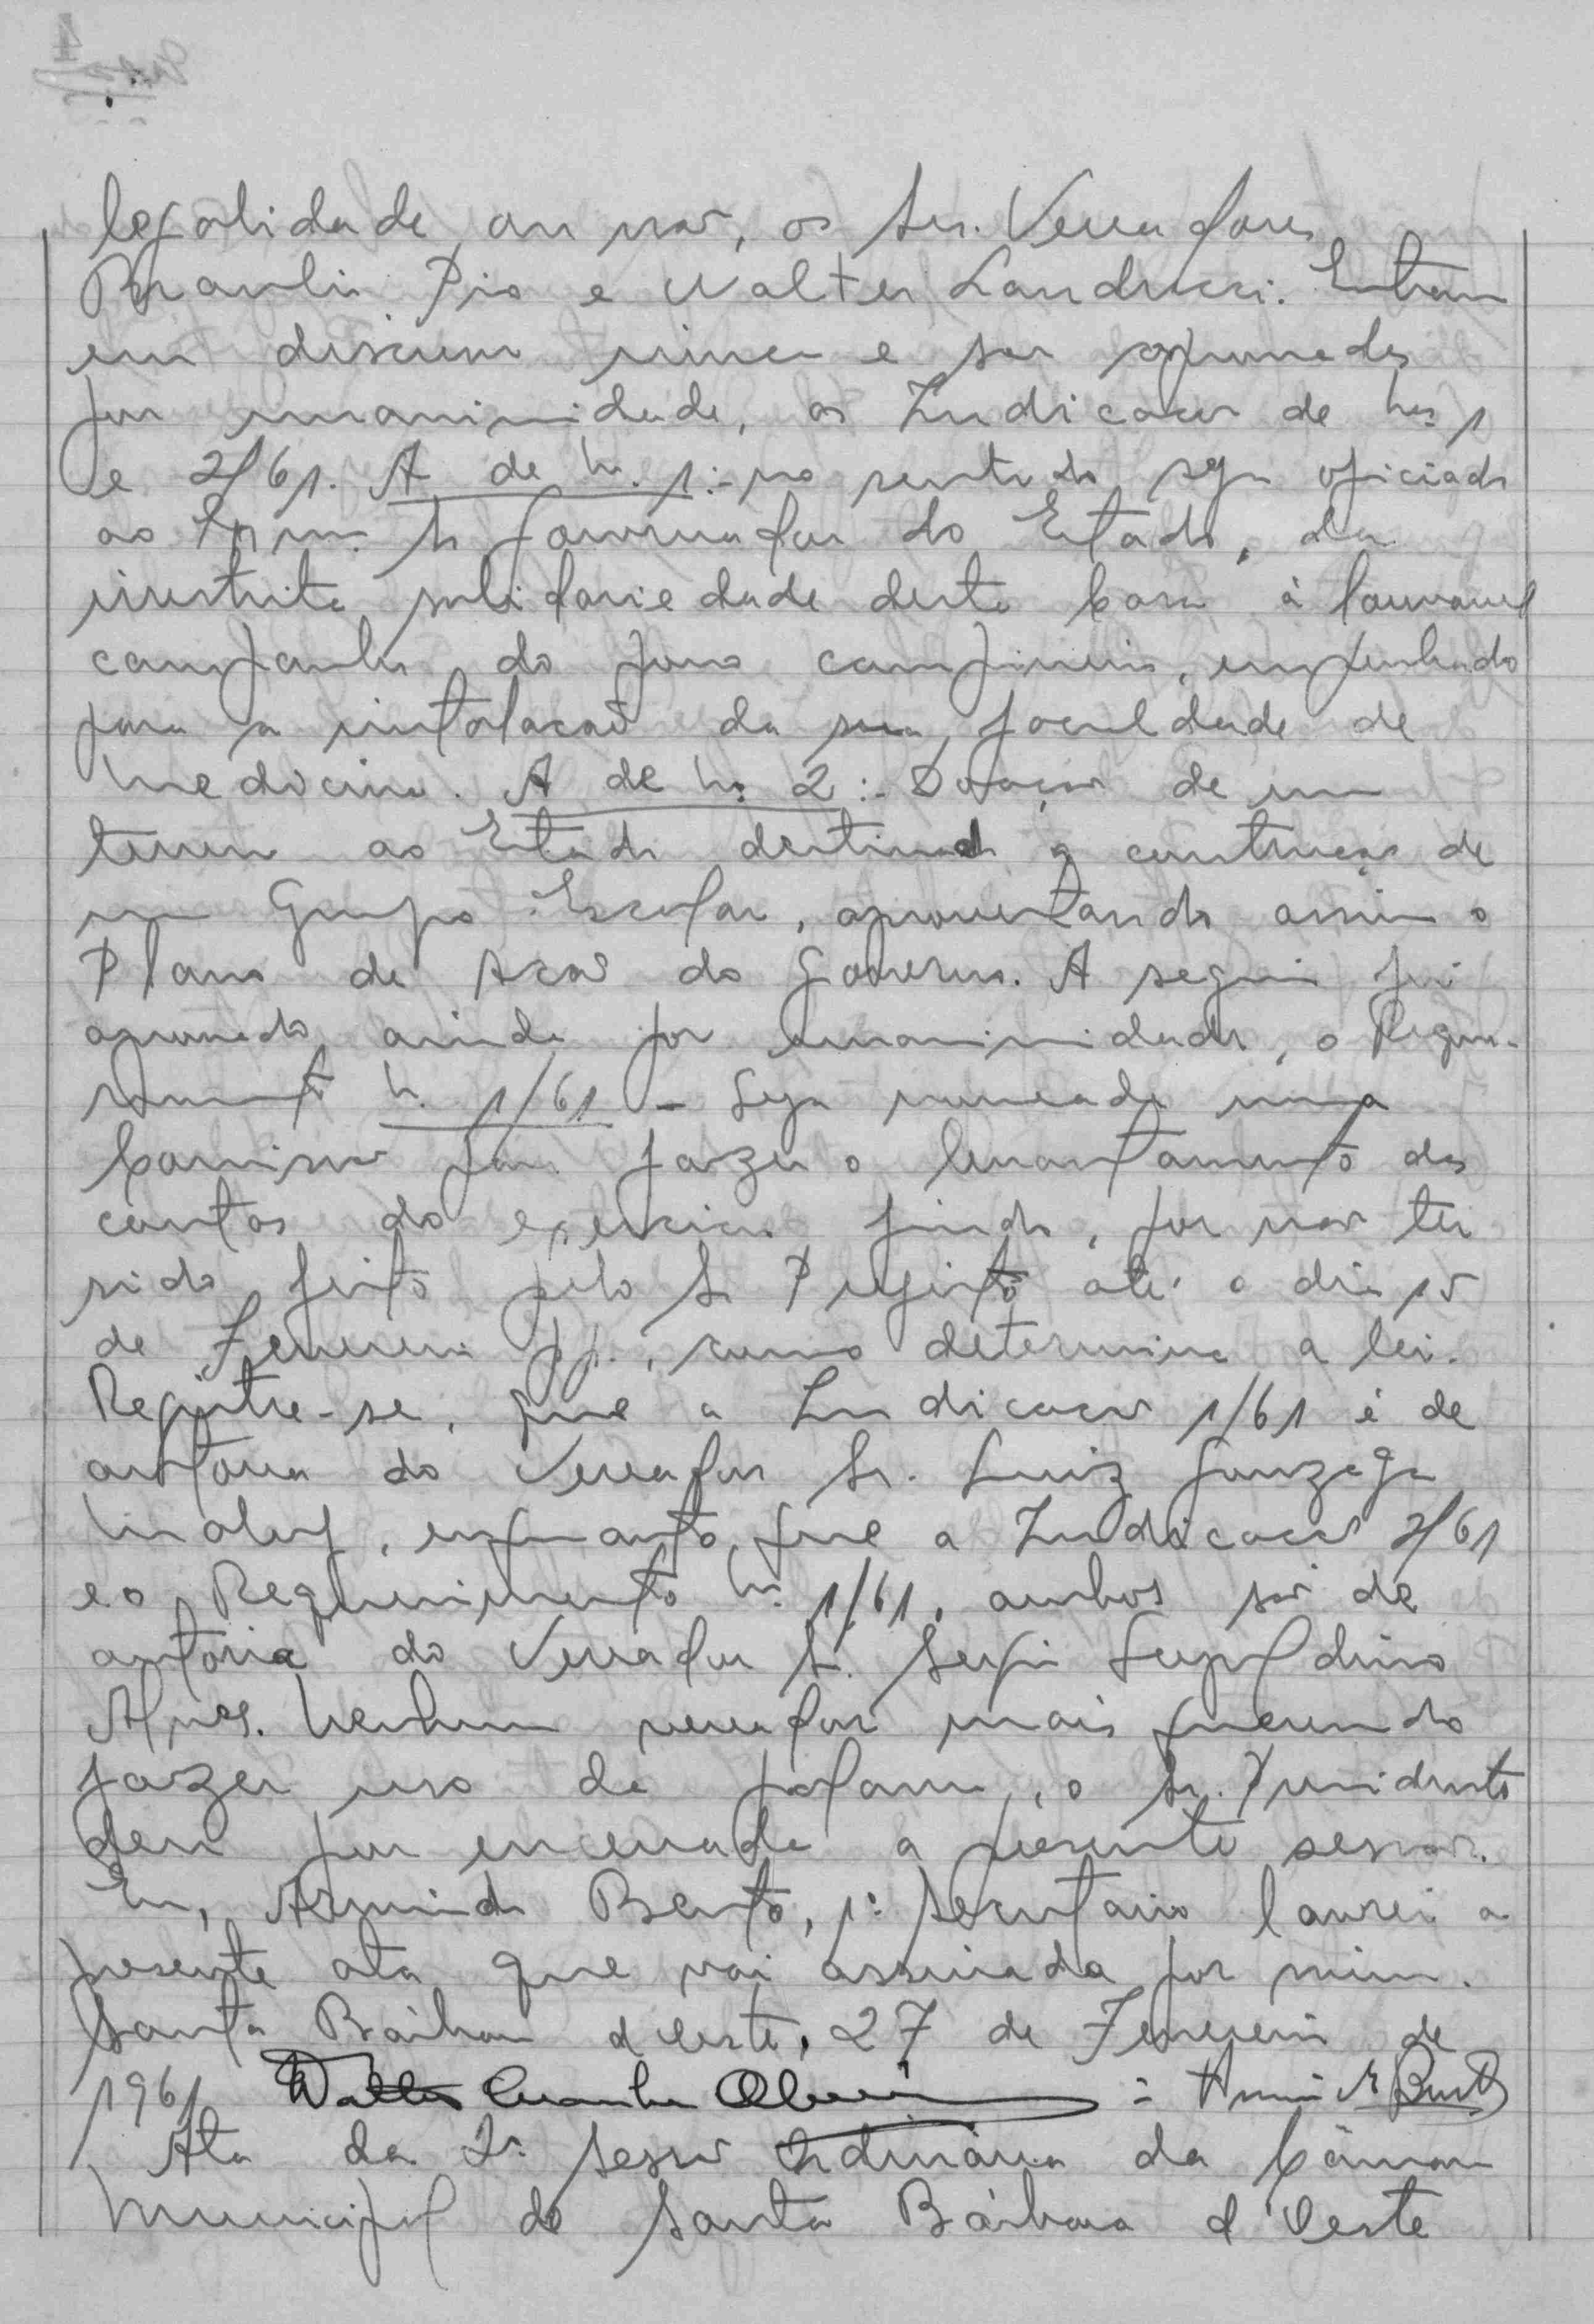 legalidade, ou não, os Srs. Vereadores
Braulio Pio e Walter Landucci. Entram
em discussão única e são aprovadas
por unanimidade, as Indicações de Nos. 1
e 2/61. A de N. 1:- no sentido seja oficiado
ao Exmo. Sr Governador do Estado, da
irrestrita solidariedade desta Casa à louvavel
campanha do povo campineiro, empenhado
para a instalação da sua faculdade de
Medicina. A de Nº 2:- Doação de um
terreno ao Estado destinado a construção de
um Grupo Escolar, aproveitando assim o
Plano de Ação do Governo. A seguir foi
aprovado, ainda por unanimidade, o Reque-
rimento N. 1/61 - Seja nomeada uma
Comissão para fazer o levantamento das
contas do exercicio findo, por não ter
sido feito pelo Sr Prefeito até o dia 15
de Fevereiro pp., como determina a lei.
Registre-se, que a Indicação 1/61 é de
autoria do Vereador Sr. Luiz Gonzaga
, enquanto que a Indicação 2/61
e o Requerimento Nº 1/61, ambos são de
autoria do Vereador Sr. Sergio Leopoldino
Alves. Nenhum vereador mais querendo
fazer uso da palavra, o Sr. Presidente
deu por encerrada a presente sessão.
Eu, Armindo Bento, 1º Secretario lavrei a
presente ata que vai assinada por mim.
Santa Bárbara d'Oeste, 27 de Fevereiro de
1961 Walter - Armindo Bento
Ata da 2ª Sessão Ordinária da Câmara
Municipal de Santa Bárbara d'Oeste